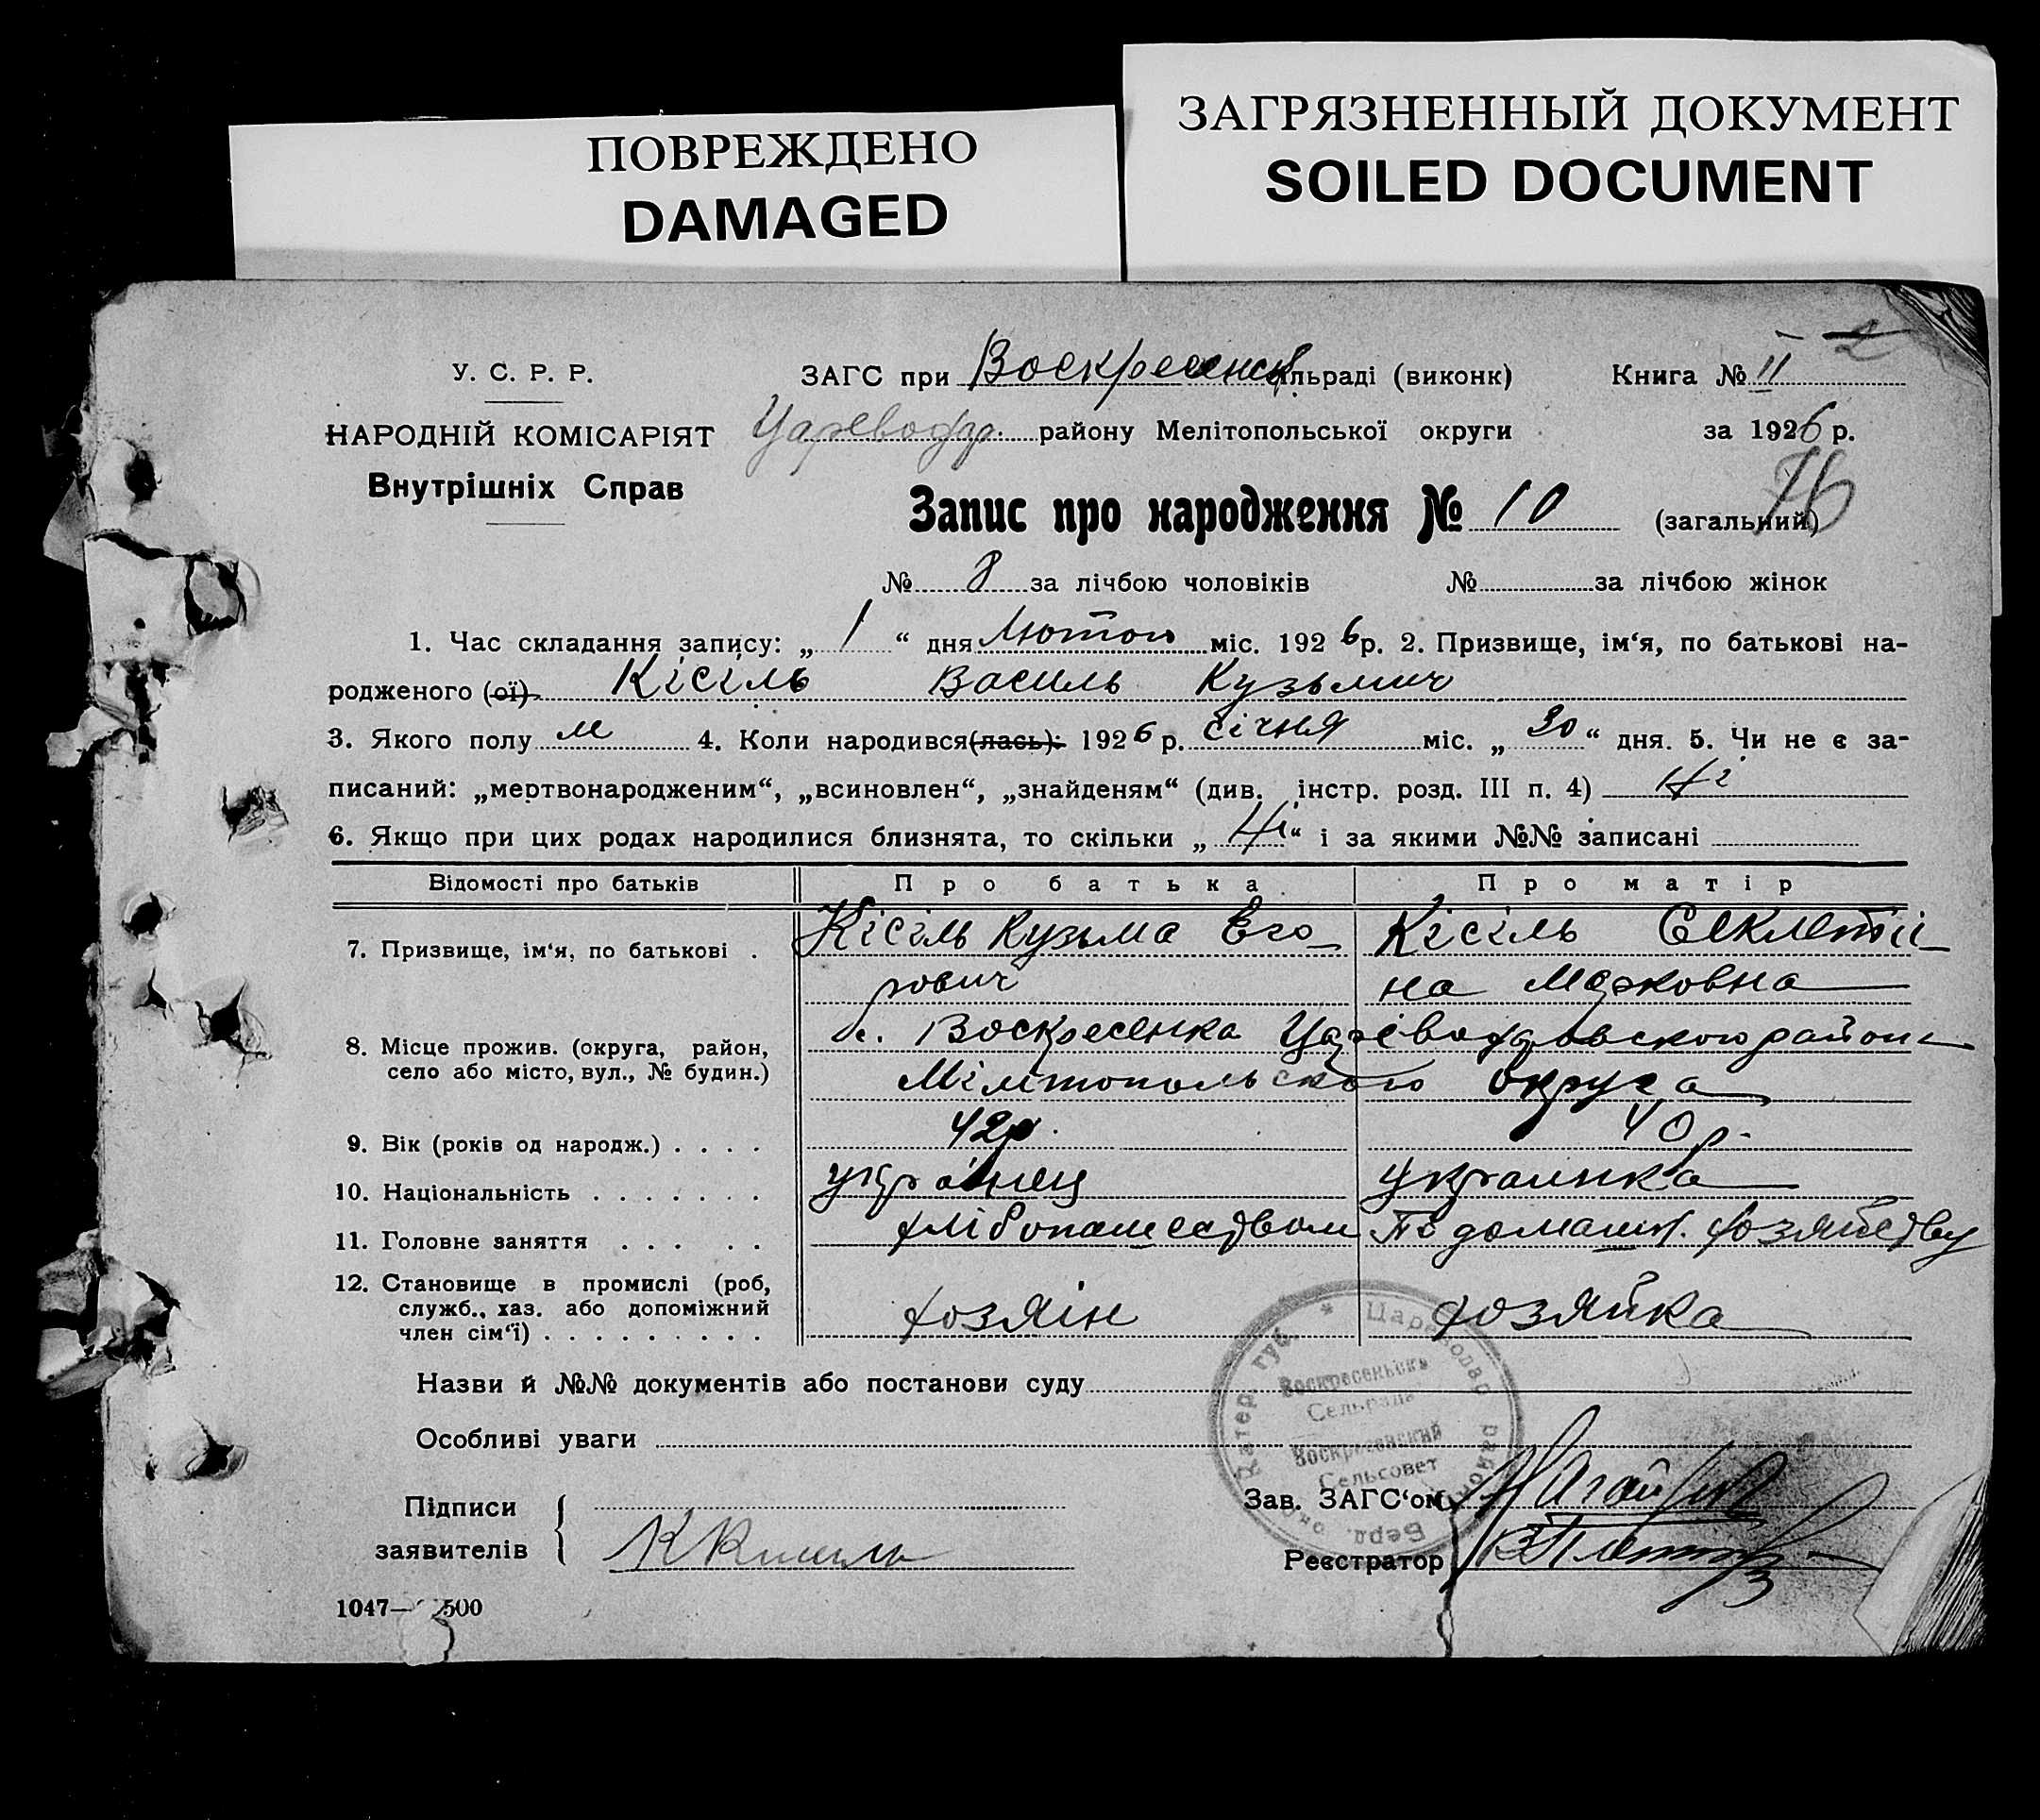 ПОВРЕЖДЕНО
DAMAGED
ЗАГРЯЗНЕННЫЙ ДОКУМЕНТ
SOILED DOCUMENT
У. С. Р. Р.
НАРОДНІЙ КОМІСАРІЯТ
Внутрішніх Справ
ЗАГС при Воскресенск сільраді (виконк)
Книга № II 2
Цареводар. району Мелітопольської округи
за 1926 р.
76
Запис про народження № 10 (загальний)
№ 8 за лічбою чоловіків № за лічбою жінок
1. Час складання запису: „ 1 “ дня Лютого міс. 1926 р. 2. Призвище, ім‘я, по батькові на-
родженого (ої) Кісіль Василь Кузьмич
3. Якого полу м 4. Коли народився (лась): 1926 р. січня міс. „ 30 “ дня. 5. Чи не є за-
писаний: „мертвонародженим“, „всиновлен“, „знайденям“ (див. інстр. розд. III п. 4) Ні
6. Якщо при цих родах народилися близнята, то скільки „ Ні “ і за якими №№ записані
Відомості про батьків Про батька Про матір
7. Призвище, ім‘я, по батькові . Кісіль Кузьма Его- Кісіль Секлетіі-
рович на Марковна
8. Місце прожив. (округа, район, с. Воскресенка Царевода
село або місто, вул., № будин.) Мілітопольского округа
9. Вік (років од народж.) . . . . 42р. 40р.
10. Національність . . . . . . . українец украинка
11. Головне заняття . . . . . хлібопашеством По домашн. хозяйству
12. Становище в промислі (роб,
служб., хаз. або допоміжний
член сім‘ї) . . . . . . . . . хозяїн хозяйка
Назви й №№ документів або постанови суду
Особливі уваги
Катер. губ. * Цареводар район Берд. окр.
Воскресеньска
Сельрада
Воскресенский
Сельсовет
Підписи
заявителів К Кисиль
Зав. ЗАГС‘ом
Реєстратор
1047— 500